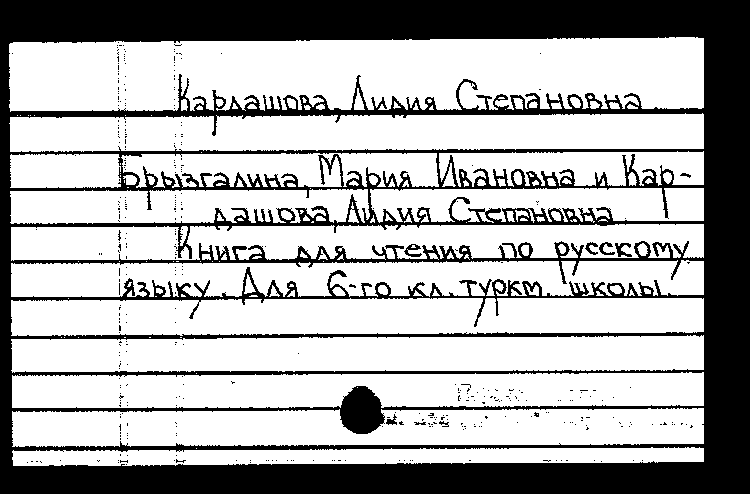 Кардашова, Лидия Степановна
Брызгалина, Мария Ивановна и Кар-
дашова, Лидия Степановна
Книга для чтения по русскому
языку. Для 6-го кл. туркм. школы.